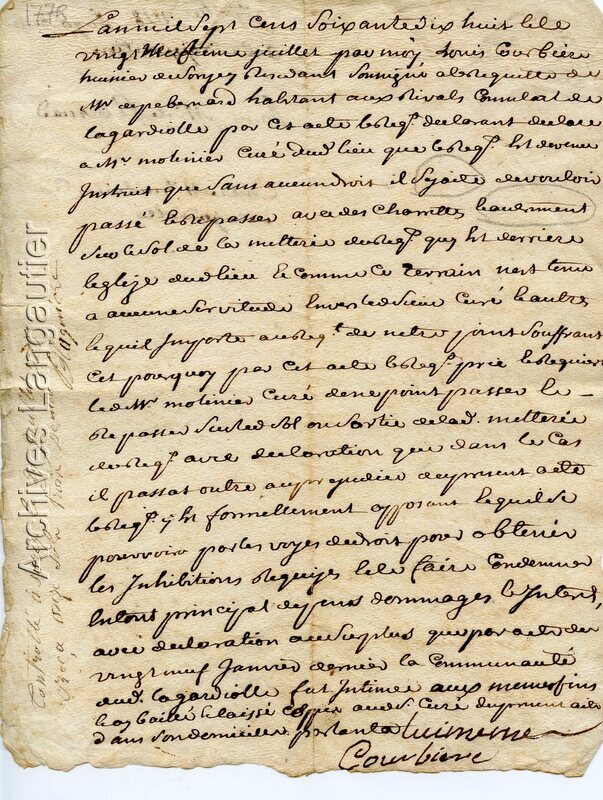 1778
L'an mil sept cens soixante dix huit et le
vingt huitieme juillet par moy Louis Courbiere
huissier de Soreze residant soussigné a la requette de
Mr depebernard habitant aux Rivals Consulat de
lagardiolle par cet acte le req.t declarant declare
a Mr molinier curé dud. lieu que le req.t est devenu
Instruit que sans aucun droit il de vouloir
passé et repasser avec des charettes et autrement
sur le sol de la metterie du req.t quy est derriere
leglize dud lieu et comme ce terrain n'est tenu
a aucune servitude envers led sieur curé et autres
et quil Importe au req.t de netre point souffrant
cet pourquoy par cet acte le req.t prie et requiert
led. Mr molinier curé de ne point passer et
repasser sur led sol ou sortie de lad. metterie
du req.t avec declaration que dans le cas
il passat outre au prejudice du present acte
le req.t y est formellement opposant et quil se
pourvoira par les voyes de droit pour obtenir
les Inhibitions requises et le faire Condemner
en tous principal depens dommages et Interet,
avec declaration au surplus que par acte du
vingt neuf Janvier dernier la Communauté
dud. lagardiolle fut Intimée aux memes fins
et ay baillé et laissé coppie aud. sr Curé du present acte
dans son domicille parlant a luimeme
Courbiere
Controllé à
Archives Langautier